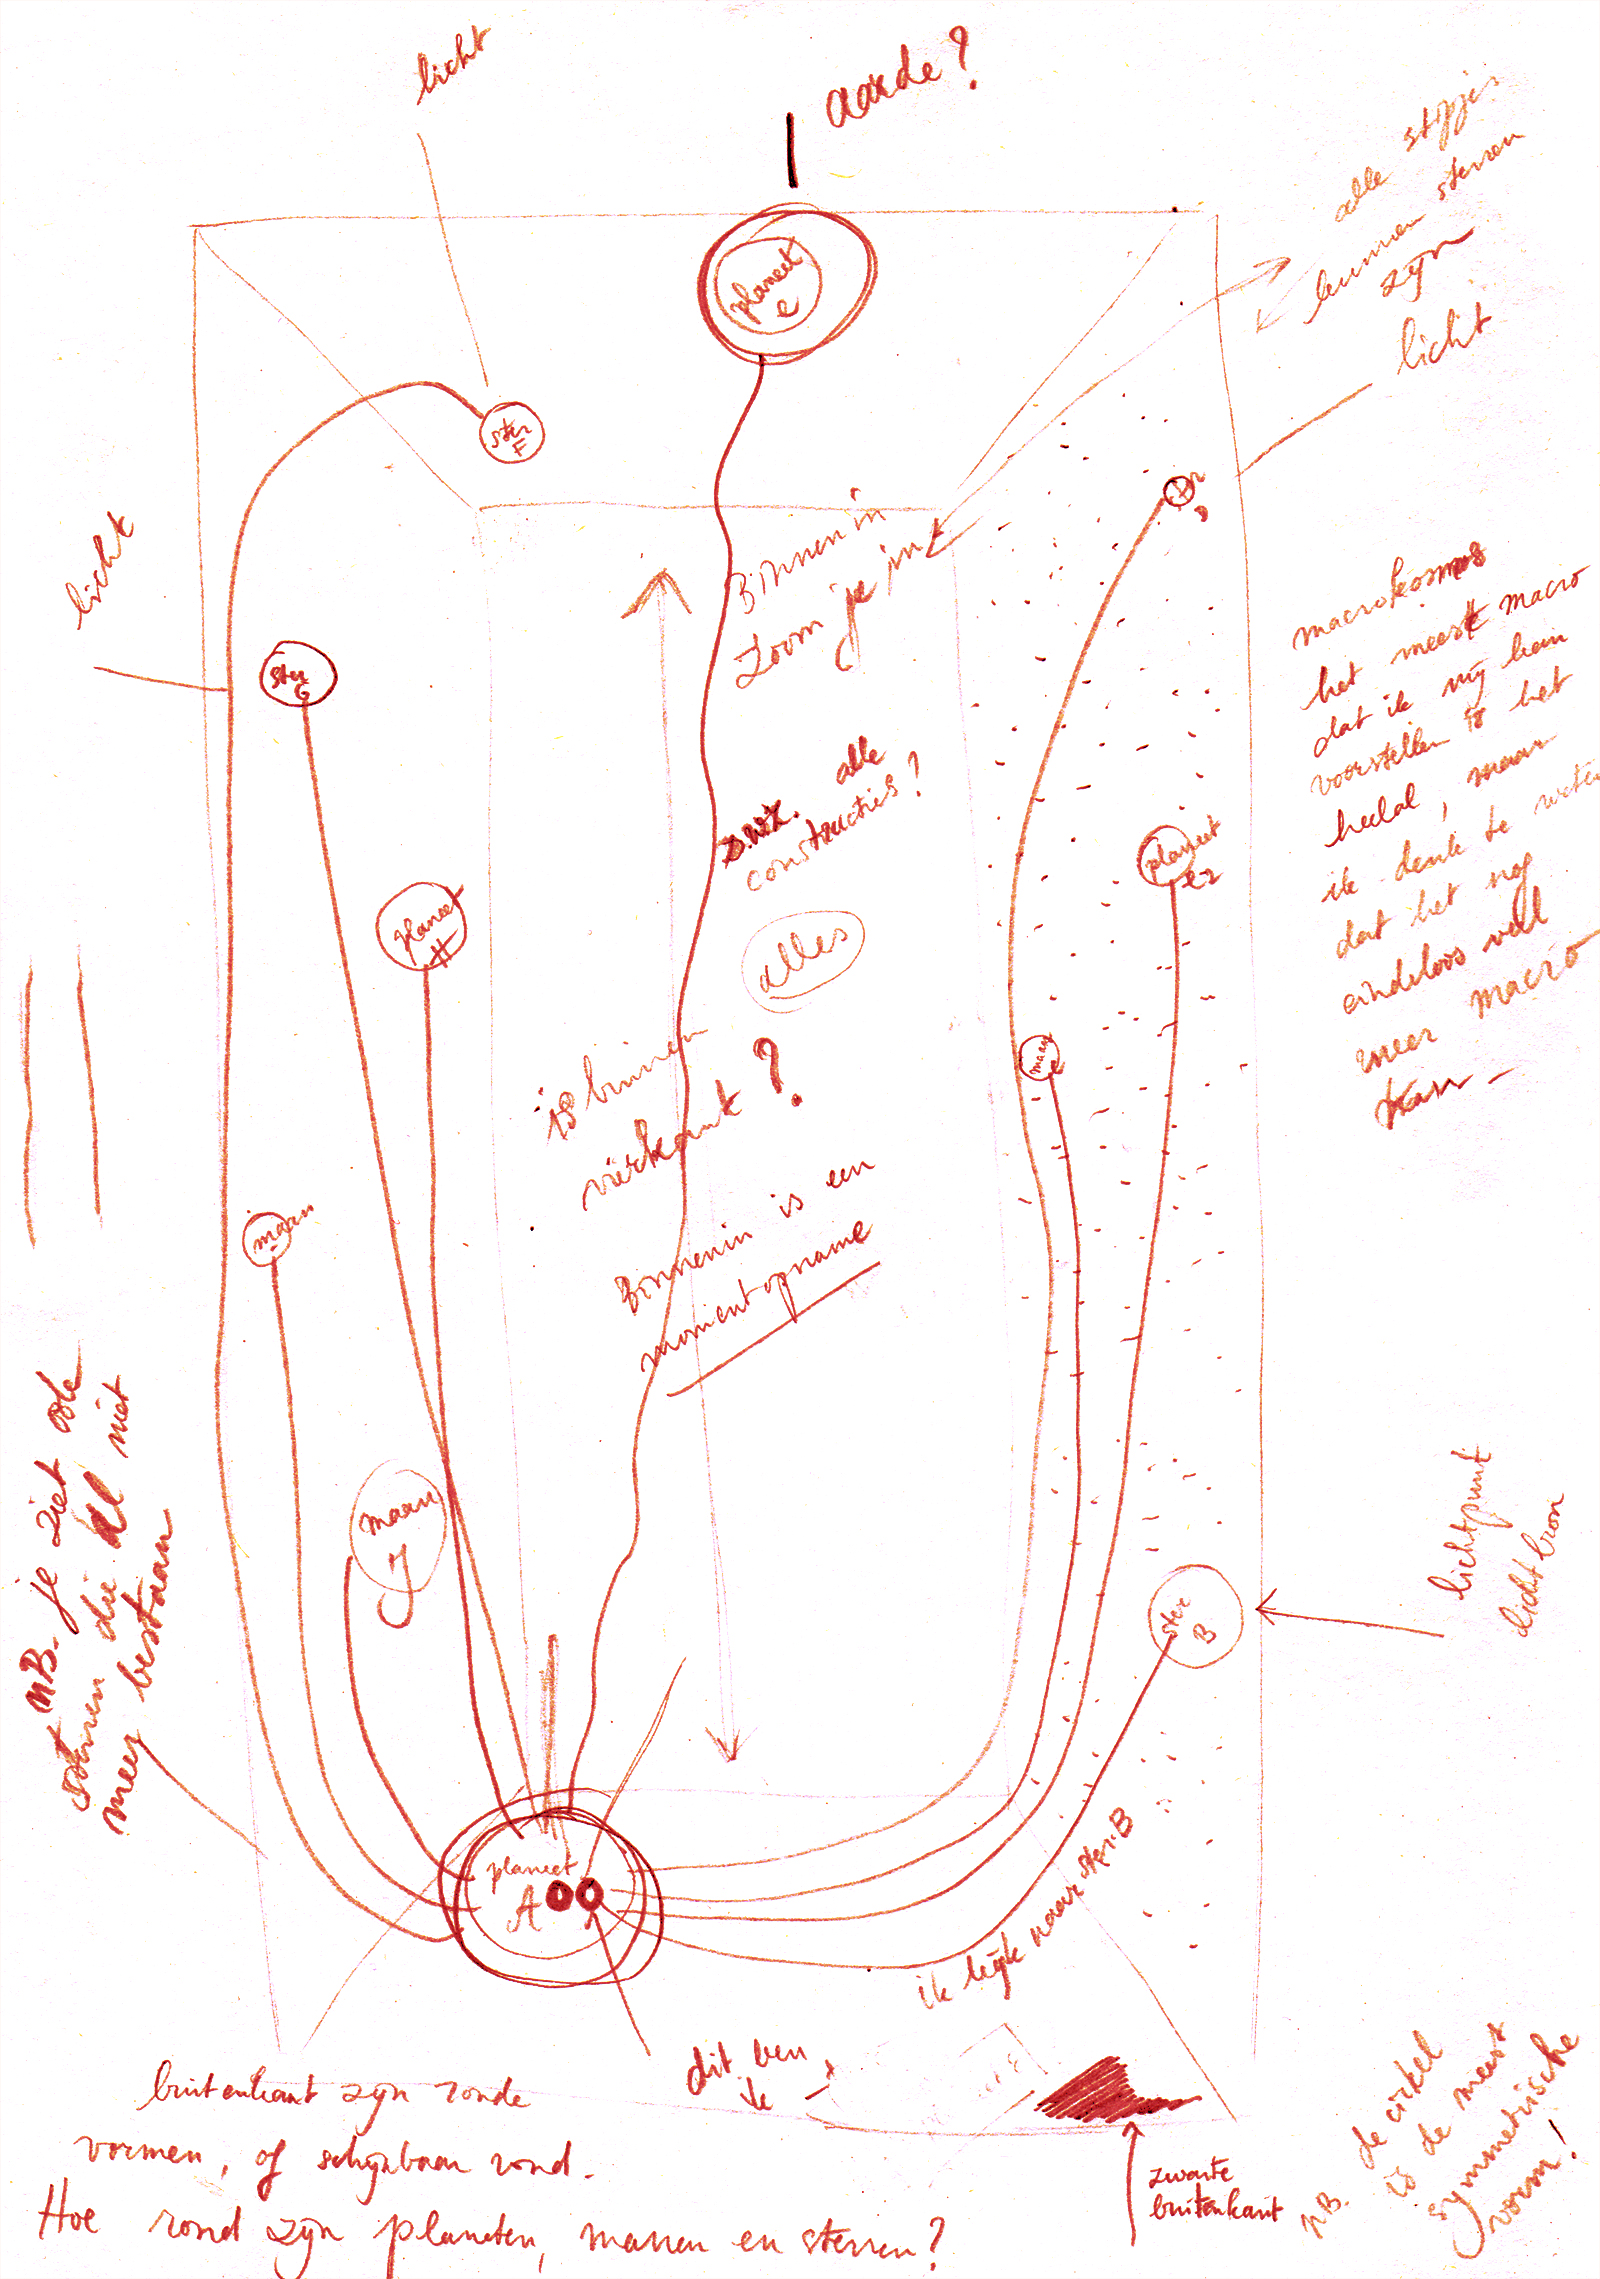 licht
aarde?
alle stipjes
kunnen sterren
zijn
licht
planeet
e
ster
F
licht
Binnenin
Zoom je in
D
macrokosmos
het meest macro
dat ik mij kan
voorstellen is het
heelal, maar
ik denk te weten
dat het nog
eindeloos veel
meer macro
kan -
ster
G
d.w.z. alle
constructies?
alles
planeet
H
planeet
is binnen
vierkant?
maan
Binnenin is een
momentopname
maan
NB. je ziet ook
sterren die al niet
meer bestaan
maan
J
lichtpunt
lichtbron
ster
B
planeet
A
ik kijk naar ster B
dit ben
ik
buitenkant zijn ronde
vormen, of schijnbaar rond.
Hoe rond zijn planeten, manen en sterren?
zwarte
buitenkant
NB. de cirkel
is de meest
symmetrische
vorm!